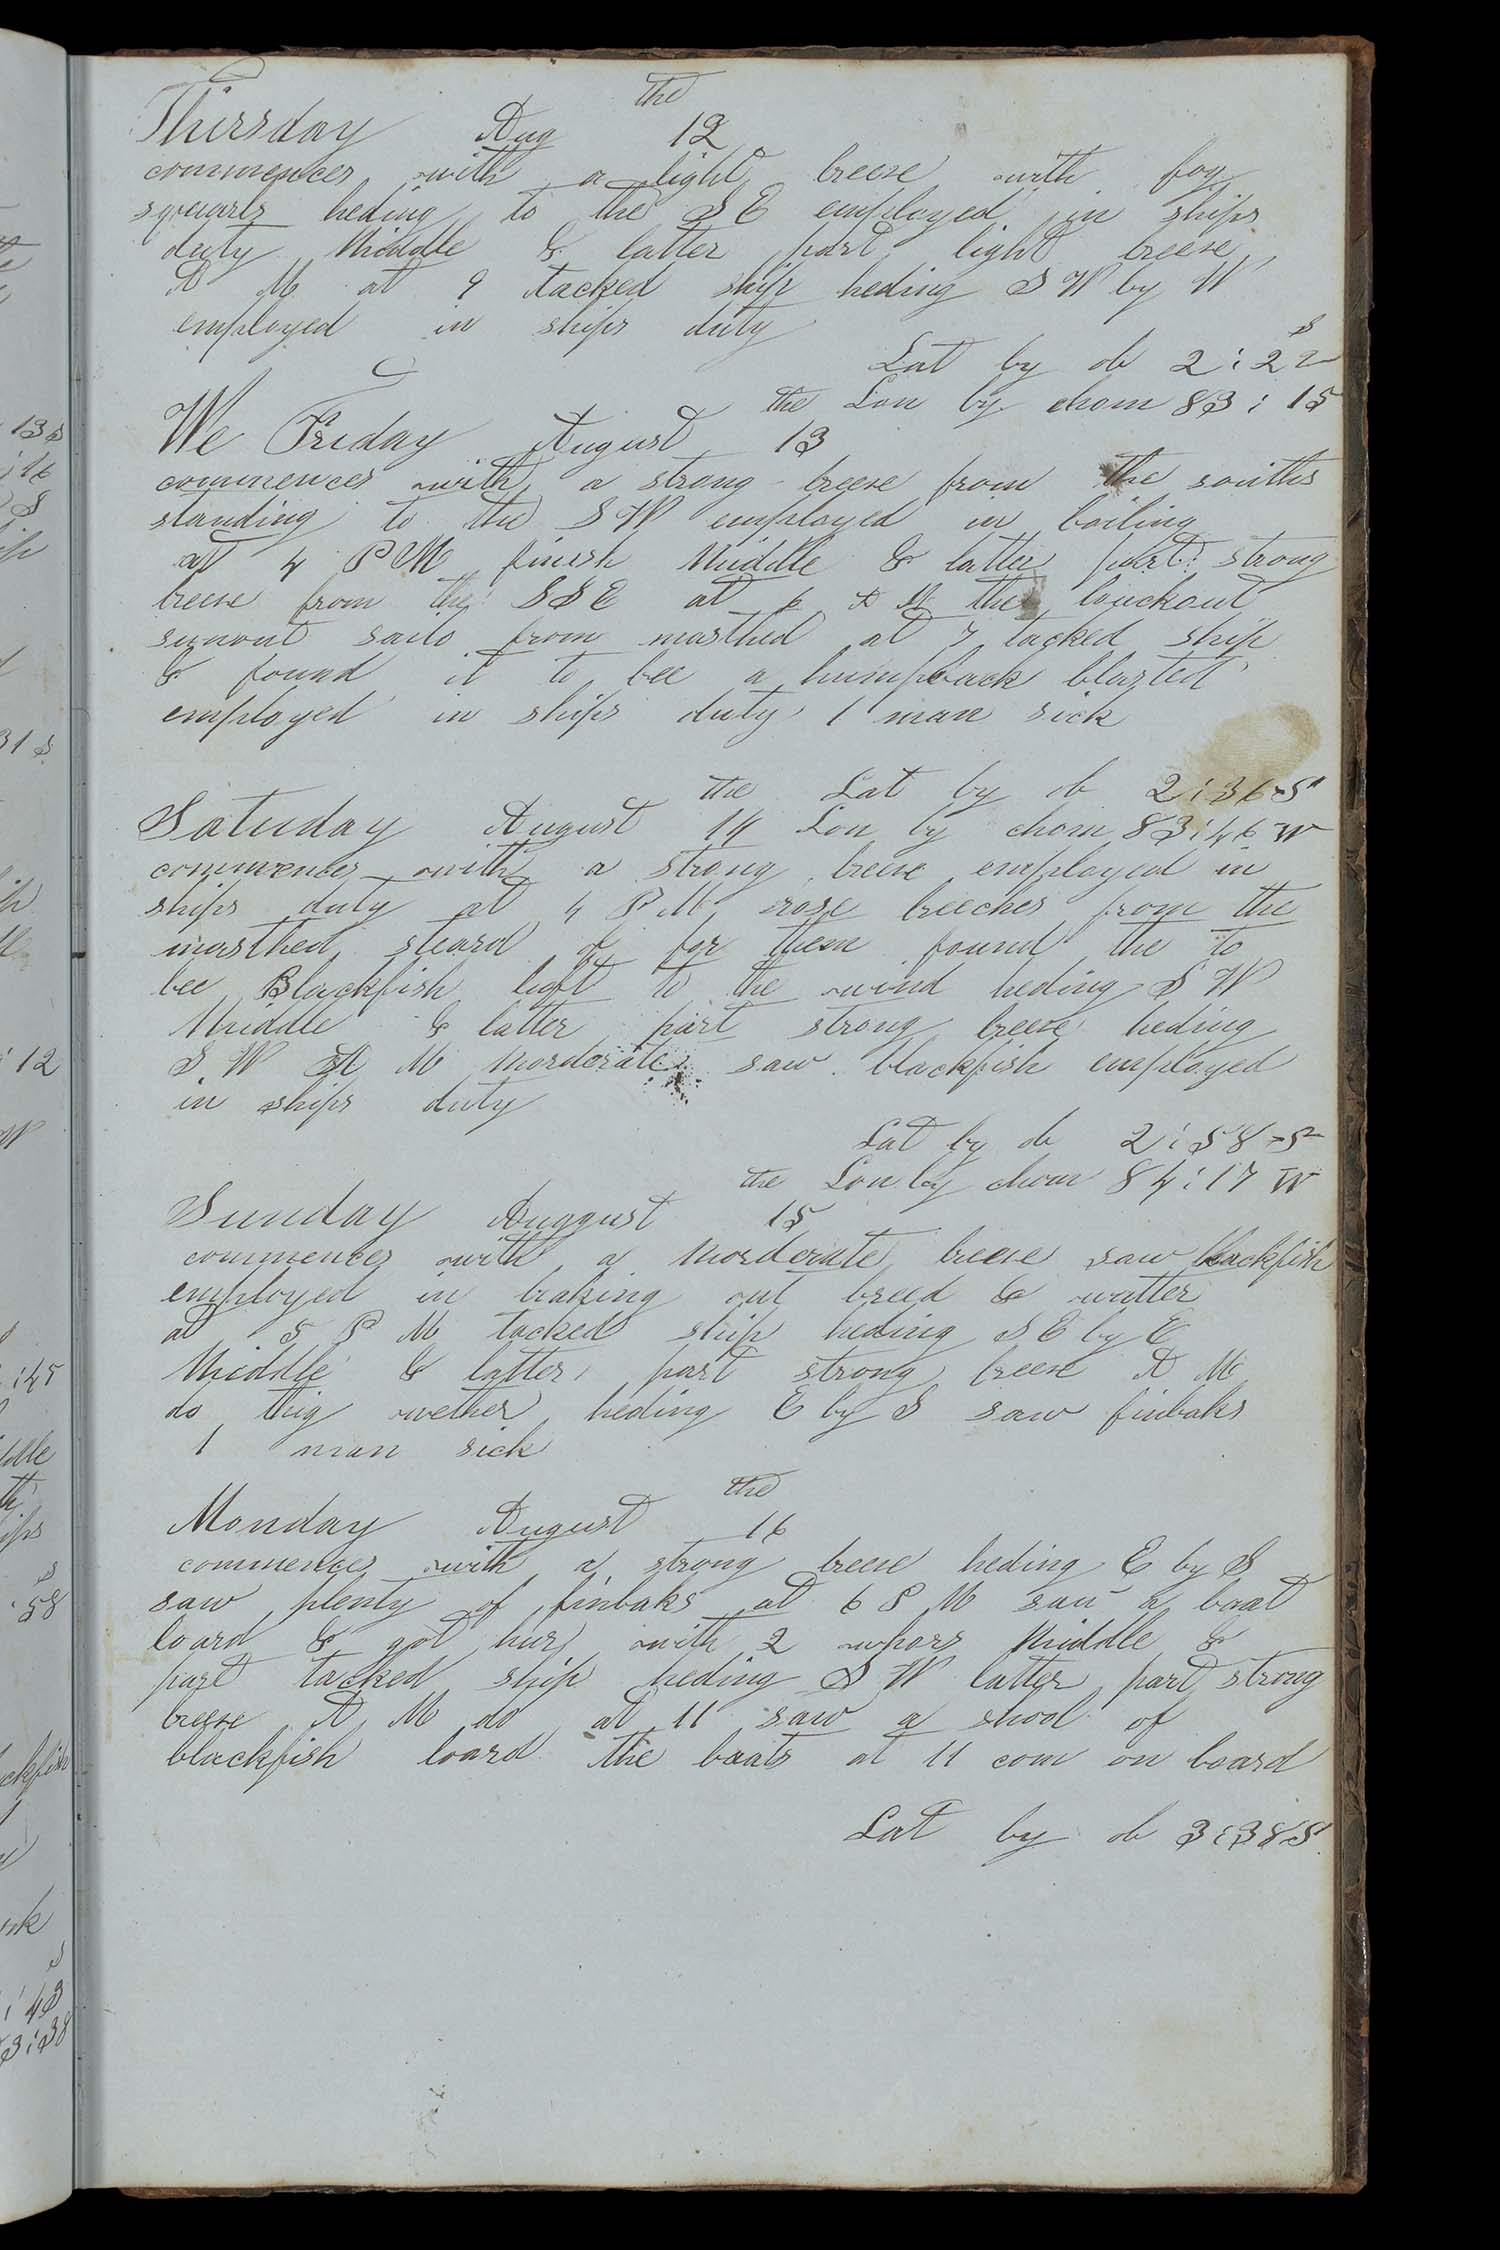 the
Thirsday Aug 12
commences with a light breese with fog
squarls heding to the S E employed in ships
duty Middle & latter part light breese
A M at 9 tacked ship heding S W by W
employed in ships duty
S
Lat by ob 2:22
the Lon by chom 83:15
We Friday August 13
commences with a strong breese from the souths
standing to the S W employed in boiling
at 4 P M finish Middle & latter part strong
breese from the S S E at 6 A M the louckout
sunout sails from masthed at 7 tacked ship
& found it to bee a humpback blasted
employed in ships duty 1 man sick
the Lat by ob 2:36 S
Satuday August 14 Lon by chom 83:46 W
commences with a strong breese employed in
ships duty at 4 P M rose breeches from the
masthed steard of for them found the to
bee Blackfish luft to the wind heding S W
Middle & latter part strong breese heding
S W A M morderate saw blackfish employed
in ships duty
Lat by ob 2:58 S
the Lon by chom 84:17 W
Sunday Auggust 15
commences with a morderate breese saw blackfish
employed in braking out breed & watter
at 5 P M tacked ship heding S E by E
Middle & latter part strong breese A M
do thig wether heding E by S saw finbaks
1 man sick
the
Monday August 16
commences with a strong breese heding E by S
saw plenty of finbaks at 6 P M saw a boat
loard & got hur with 2 whors Middle &
part tacked ship heding S W latter part strong
breese A M do at 11 saw a shool of
blackfish loard the boats at 11 com on board
Lat by ob 3:38 S